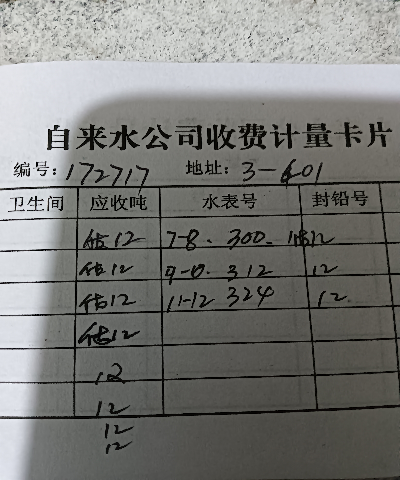 自来水公司收费计量卡片
编号:172717 地址:3-601
卫生间 应收吨 水表号 封铅号
估12 7-8. 300. 12
估12 9-10 312 12
估12 11-12 324 12.
估12
12
12
12
12